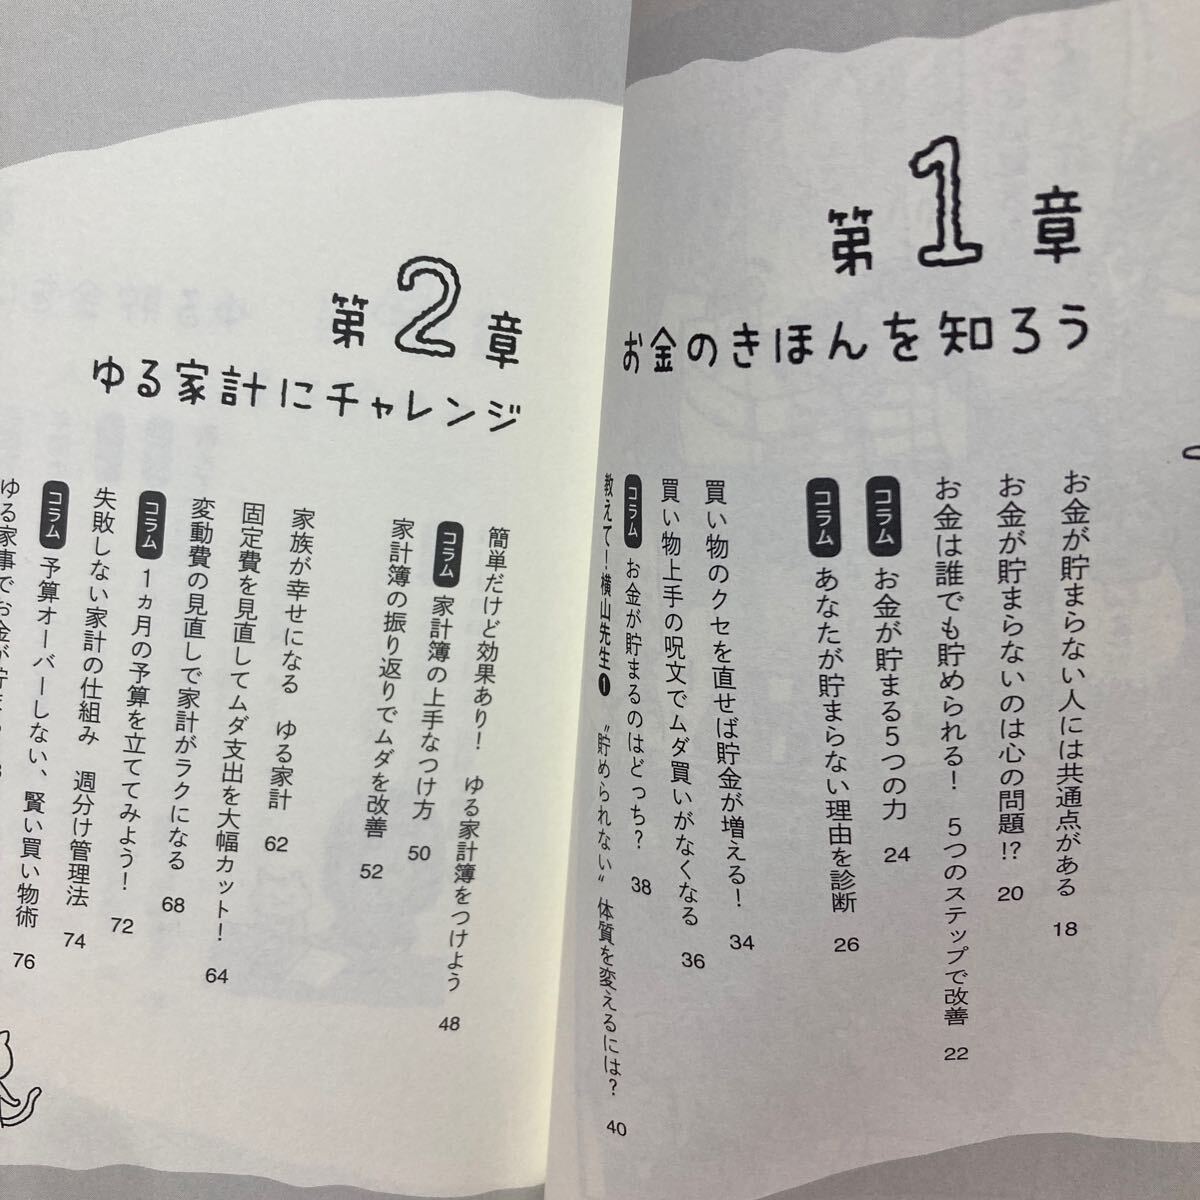 第1章
お金のきほんを知ろう
お金が貯まらない人には共通点がある 18
お金が貯まらないのは心の問題!? 20
お金は誰でも貯められる! 5つのステップで改善 22
コラム お金が貯まる5つの力 24
コラム あなたが貯まらない理由を診断 26
買い物のクセを直せば貯金が増える! 34
買い物上手の呪文でムダ買いがなくなる 36
コラム お金が貯まるのはどっち? 38
教えて!横山先生❶ “貯められない”体質を変えるには? 40
第2章
ゆる家計にチャレンジ
簡単だけど効果あり! ゆる家計簿をつけよう 48
コラム 家計簿の上手なつけ方 50
家計簿の振り返りでムダを改善 52
家族が幸せになる ゆる家計 62
固定費を見直してムダ支出を大幅カット! 64
変動費の見直しで家計がラクになる 68
コラム 1ヵ月の予算を立ててみよう! 72
失敗しない家計の仕組み 週分け管理法 74
コラム 予算オーバーしない、賢い買い物術 76
ゆる家事でお金が貯ま